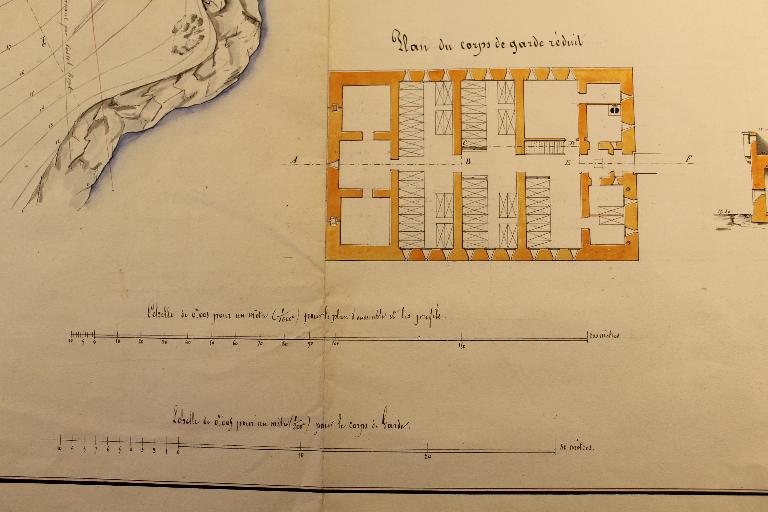 Plan du corps de garde réduit
A B C D E F
Echelle de 0,001 pour un mètre (1/1000) pour le plan d'ensemble et les profils.
10 5 0 10 20 30 40 50 60 70 80 90 100 150 200 mètres
Echelle de 0,005 pour un mètre (1/200) pour le corps de Garde.
10 9 8 7 6 5 4 3 2 1 0 10 20 30 mètres.